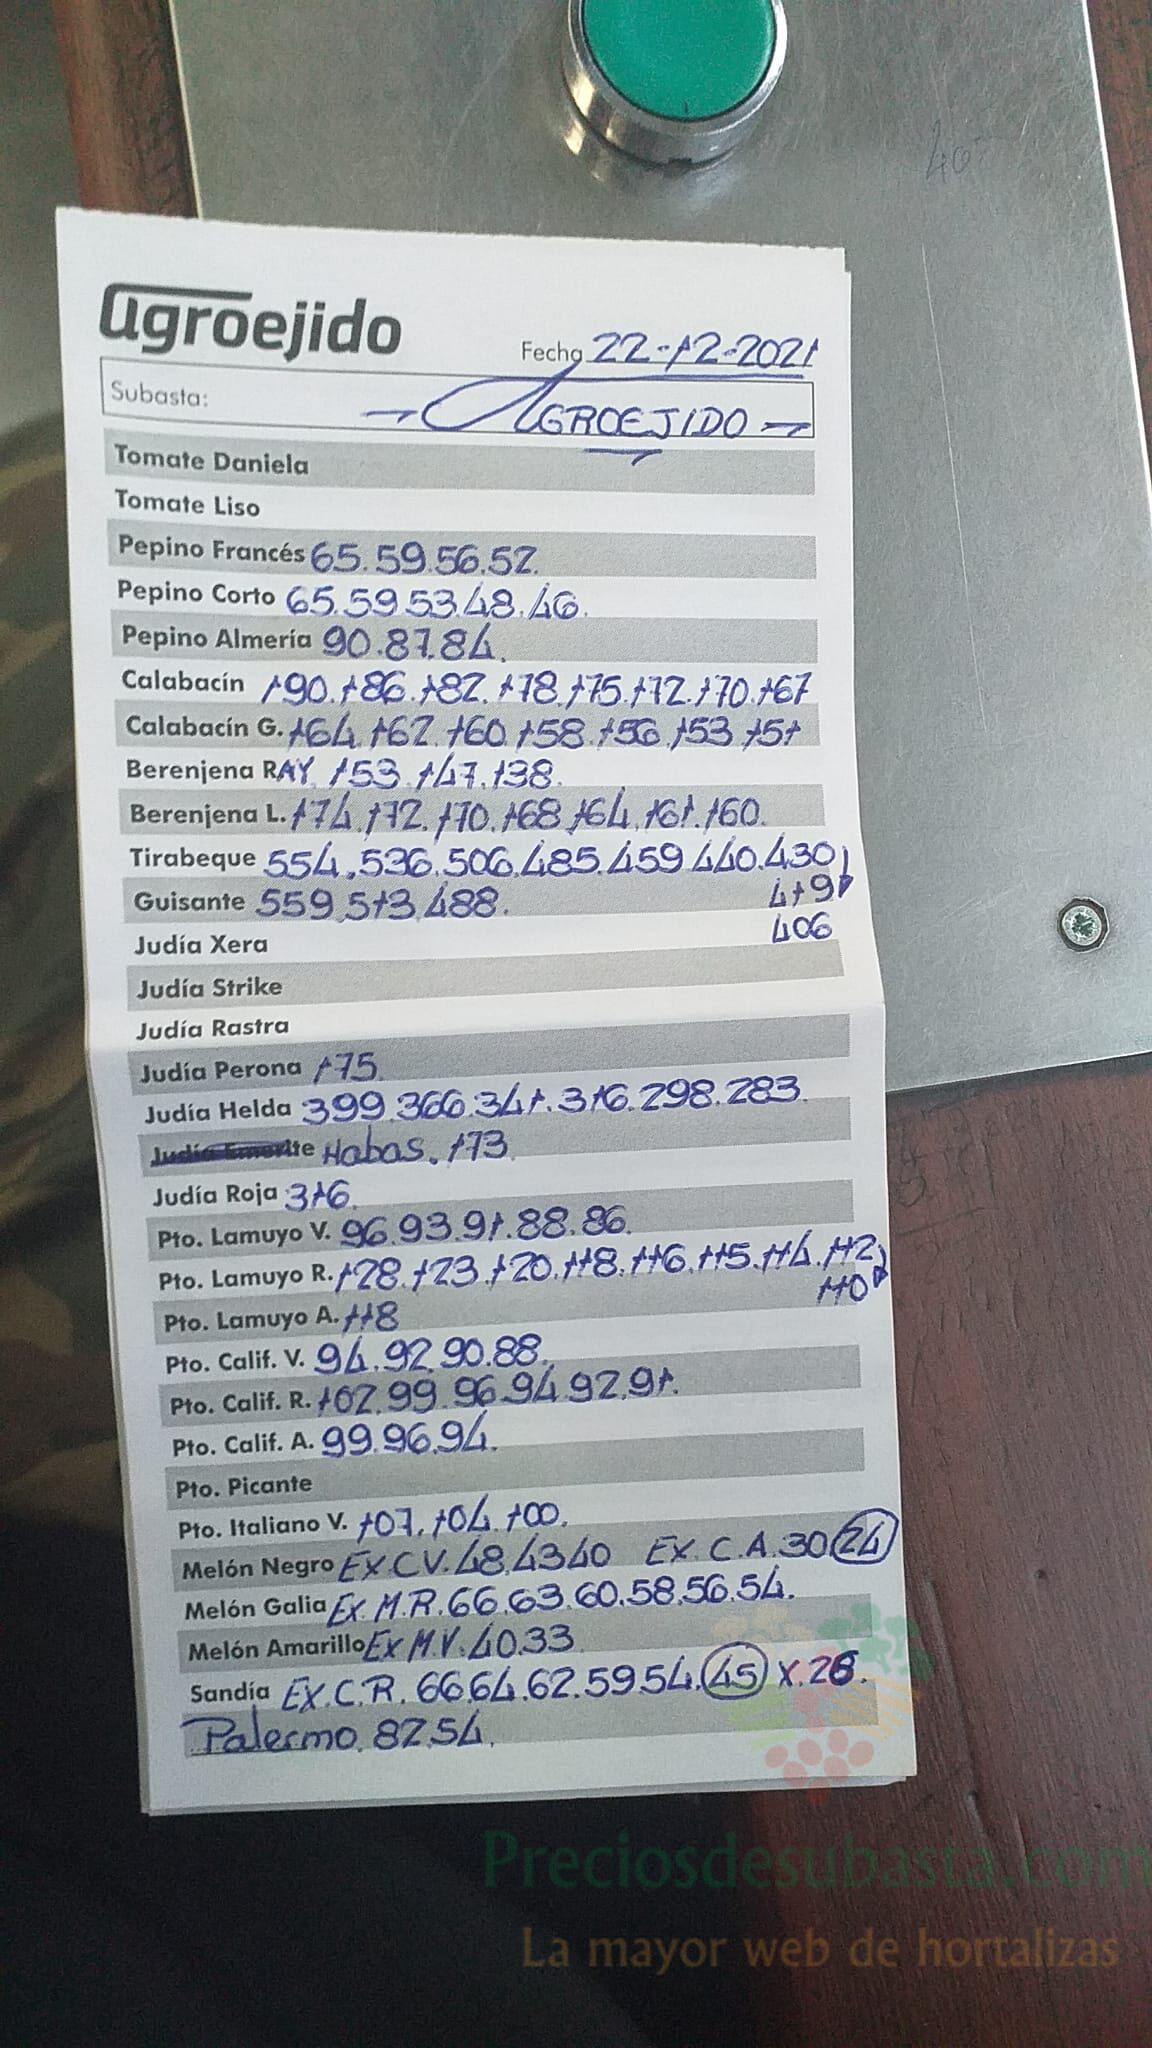 40
agroejido
Fecha 22-12-2021
Subasta: AGROEJIDO
Tomate Daniela
Tomate Liso
Pepino Francés 65.59.56.52.
Pepino Corto 65.59.53.48.46.
Pepino Almería 90.87.84.
Calabacín 190.186.182.178.175.172.170.167
Calabacín G. 164.162.160.158.156.153.151
Berenjena RAY. 153.147.138.
Berenjena L. 174.172.170.168.164.161.160.
Tirabeque 554.536.506.485.459.440.430
419
Guisante 559.513.488.
406
Judía Xera
Judía Strike
Judía Rastra
Judía Perona 175.
Judía Helda 399.366.341.316.298.283.
Judía Emerite Habas. 173.
Judía Roja 316.
Pto. Lamuyo V. 96.93.91.88.86.
Pto. Lamuyo R. 128.123.120.118.116.115.114.112
110
Pto. Lamuyo A. 118
Pto. Calif. V. 94.92.90.88.
Pto. Calif. R. 102.99.96.94.92.91.
Pto. Calif. A. 99.96.94.
Pto. Picante
Pto. Italiano V. 107.104.100.
Melón Negro Ex C.V. 48.43.40 Ex. C.A. 30 24
Melón Galia Ex. M.R. 66.63.60.58.56.54.
Melón Amarillo Ex M.V. 40.33
Sandía Ex. C.R. 66.64.62.59.54. 45 X.28.
Palermo. 82.54.
Preciosdesubasta.com
La mayor web de hortalizas